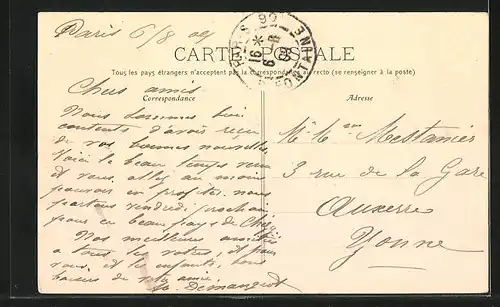 Paris 6/8 09
CARTE POSTALE
Tous les pays étrangers n'acceptent pas la correspondance au recto (se renseigner à la poste)
Correspondance
Adresse
Chers amis
Nous sommes bien
contents d'avoir reçu
de vos bonnes nouvelles.
Voici le beau temps venu
et vous, allez au moins
pouvoir en profiter, nous
partons vendredi prochain
pour ce beau pays de
Nos meilleures amitiés
à tous les vôtres, et pour
vous, et les enfants, bons
baisers de votre amie
Demangeot
Mr Mestanier
3 rue de la Gare
Auxerre
Yonne